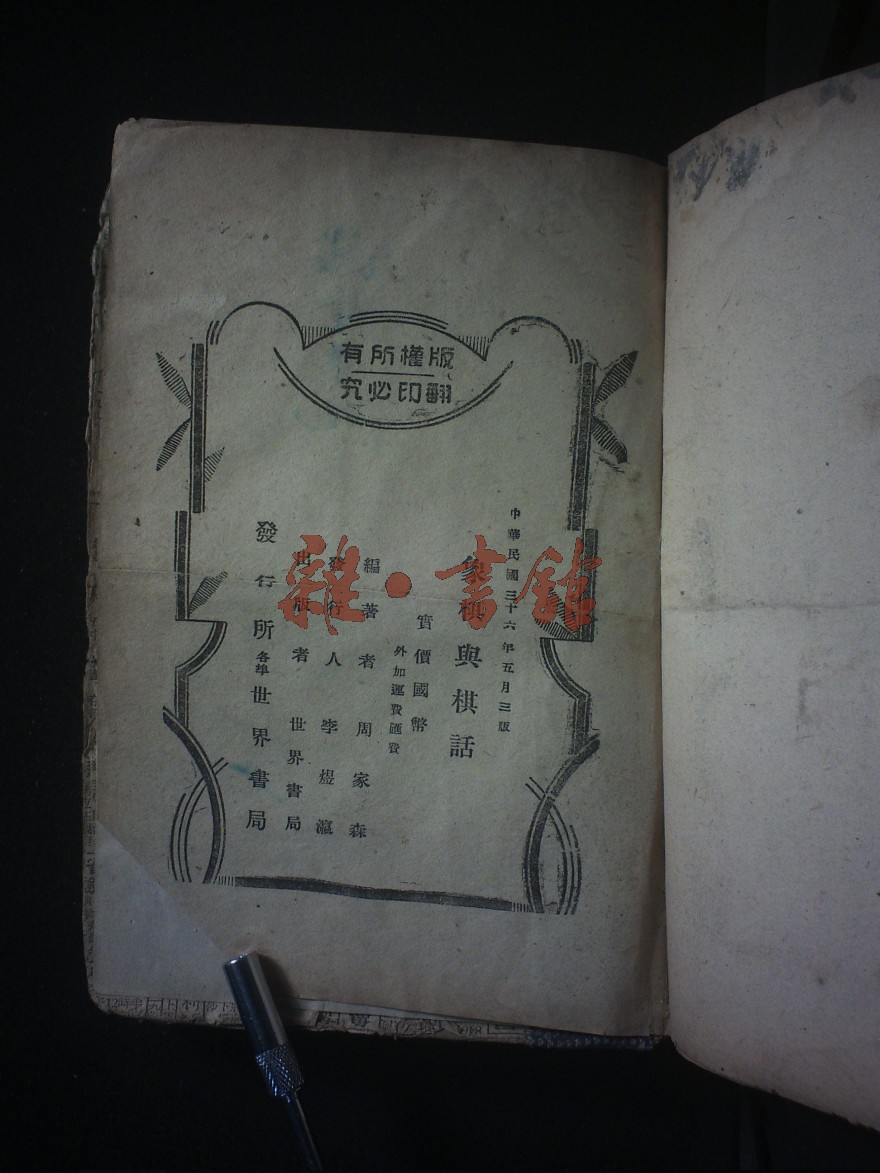 版權所有
翻印必究
中華民國三十六年五月三版
象棋與棋話
實價國幣
外加運費匯費
編著者 周家森
發行人 李煜瀛
出版者 世界書局
發行所 各埠 世界書局
雜·書館